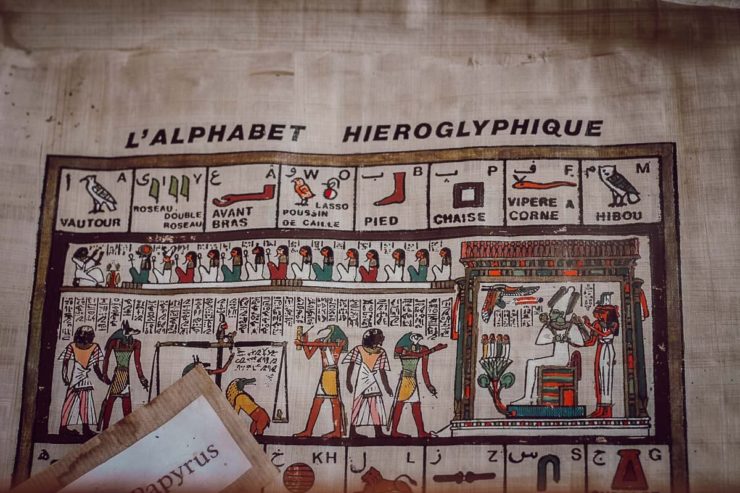 L'ALPHABET HIEROGLYPHIQUE
أ A
VAUTOUR
ي Y
ROSEAU,
DOUBLE
ROSEAU
ع Â
AVANT
BRAS
و W O
LASSO
POUSSIN
DE CAILLE
ب B
PIED
ب P
CHAISE
ف F
VIPERE A
CORNE
م M
HIBOU
ه
KH
ل L
ز Z
س S
ج G
Papyrus